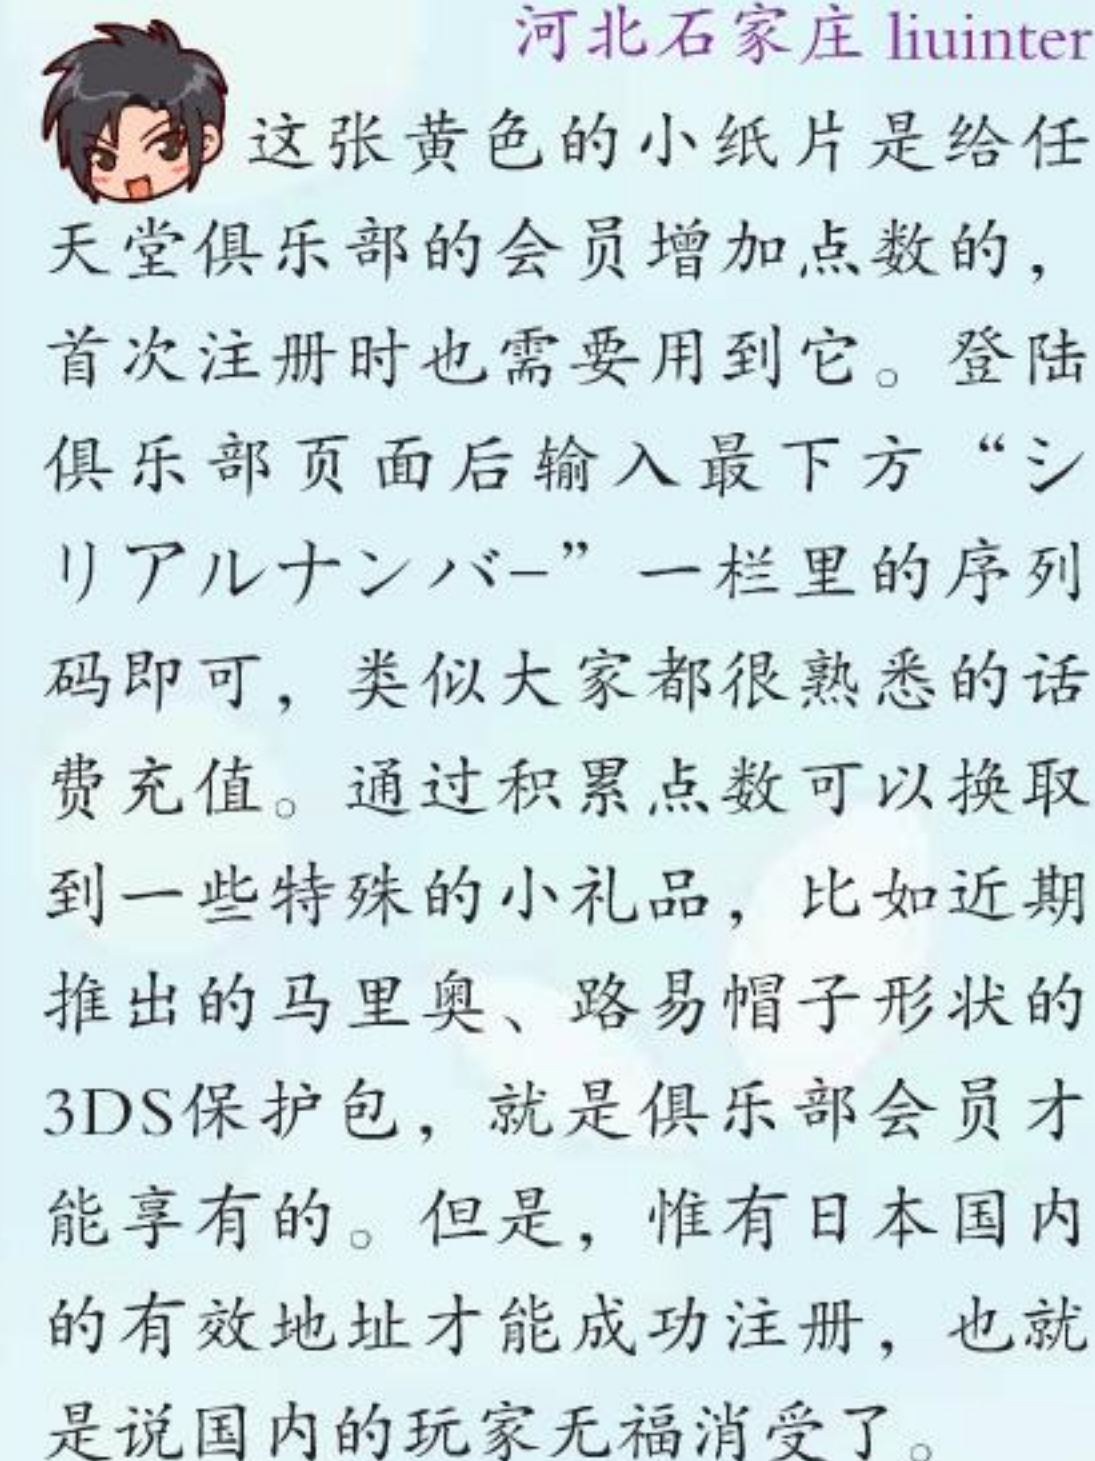 河北石家庄 liuinter
这张黄色的小纸片是给任
天堂俱乐部的会员增加点数的，
首次注册时也需要用到它。登陆
俱乐部页面后输入最下方“シ
リアルナンバー”一栏里的序列
码即可，类似大家都很熟悉的话
费充值。通过积累点数可以换取
到一些特殊的小礼品，比如近期
推出的马里奥、路易帽子形状的
3DS保护包，就是俱乐部会员才
能享有的。但是，惟有日本国内
的有效地址才能成功注册，也就
是说国内的玩家无福消受了。